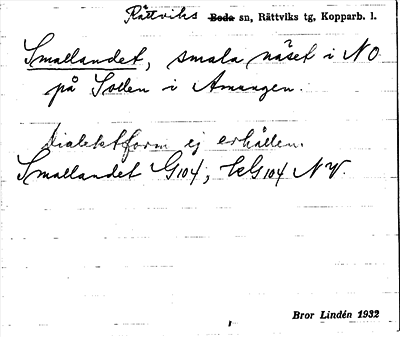 Rättviks Boda sn, Rättviks tg, Kopparb. l.
Smallandet, smala näset i NO
på Sollen i Amungen.
dialektform ej erhållen.
Smallandet G104, kG104 NV.
Bror Lindén 1932